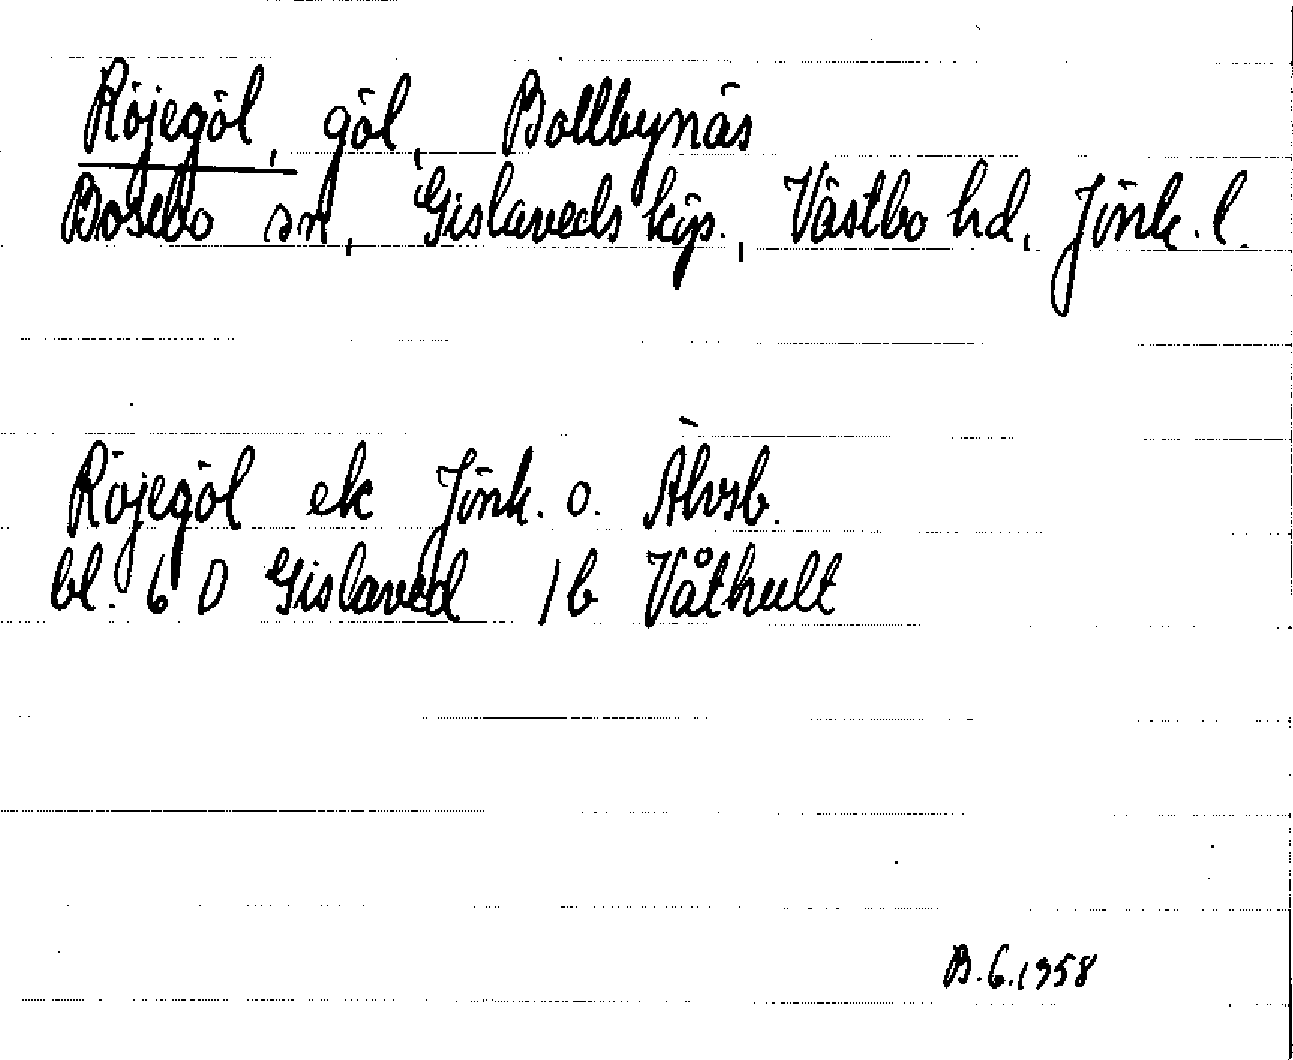 Röjegöl, göl, Bollbynäs
Bosebo sn, Gislaveds köp., Västbo hd, Jönk. l.
Röjegöl ek Jönk. o. Älvsb.
bl. 6 D Gislaved 1b Våthult
B.G.1958